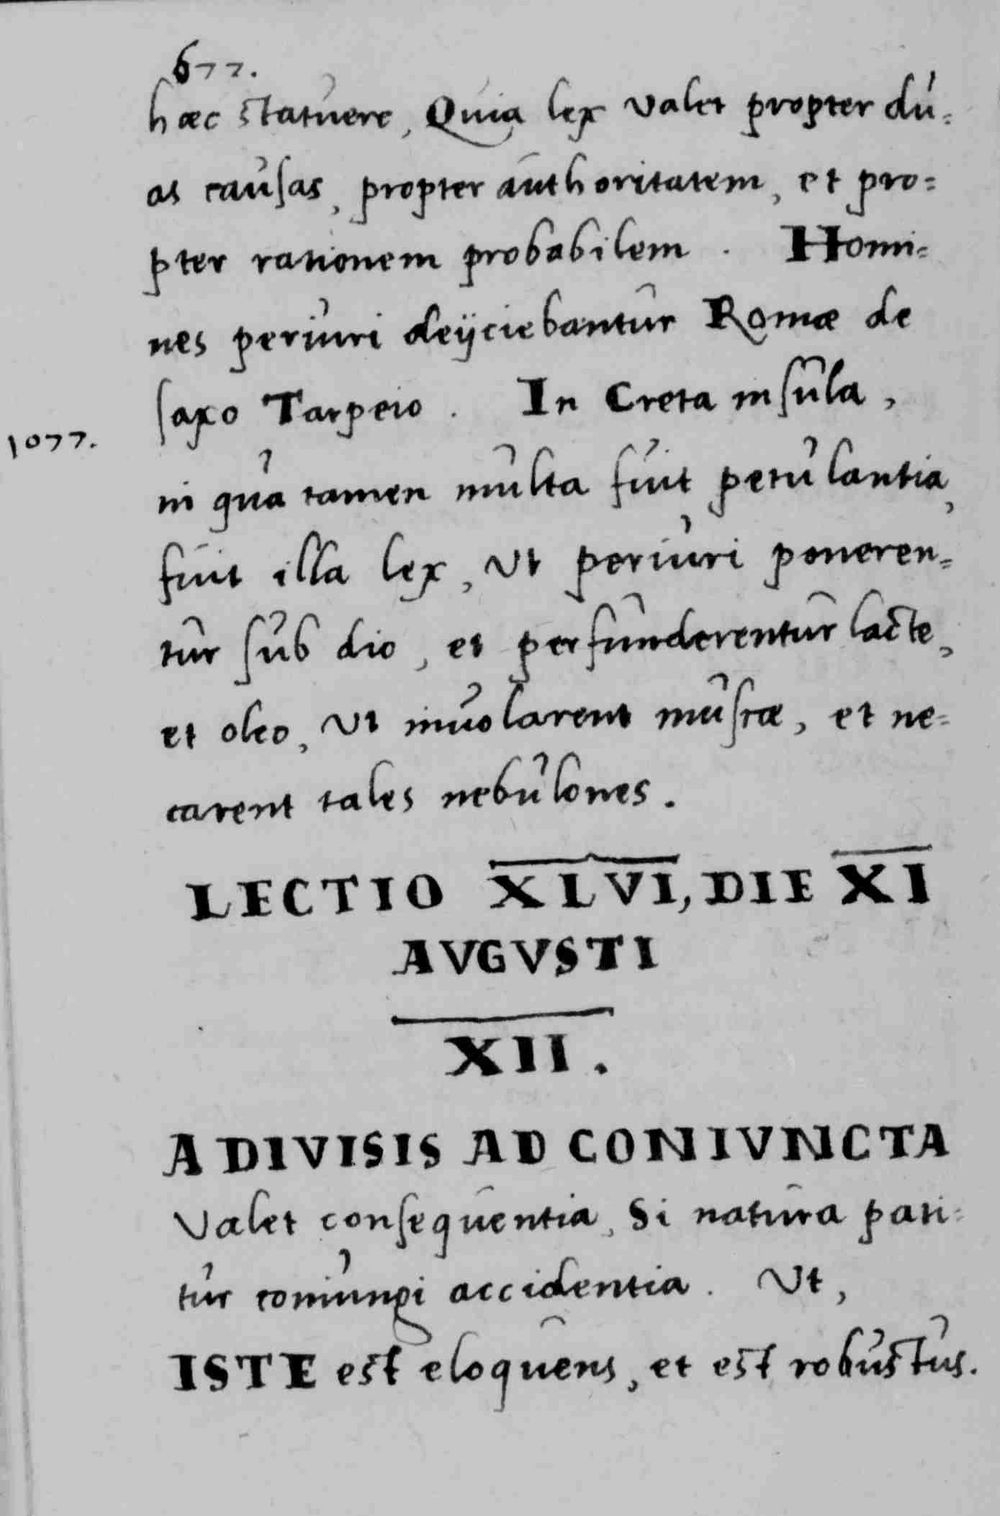 677.
hæc statuere, Quia lex valet propter du-
as causas, propter authoritatem, et pro-
pter rationem probabilem. Homi-
nes periuri deijciebantur Romæ de
saxo Tarpeio. In Creta insula,
1077.
in qua tamen multa fuit petulantia,
fuit illa lex, Ut periuri poneren-
tur sub dio, et perfunderentur lacte,
et oleo, Ut inuolarent muscæ, et ne-
carent tales nebulones.
LECTIO XLVI, DIE XI
AVGVSTI
XII.
A DIVISIS AD CONIVNCTA
Valet consequentia, Si natura pati-
tur coniungi accidentia. Ut,
ISTE est eloquens, et est robustus.